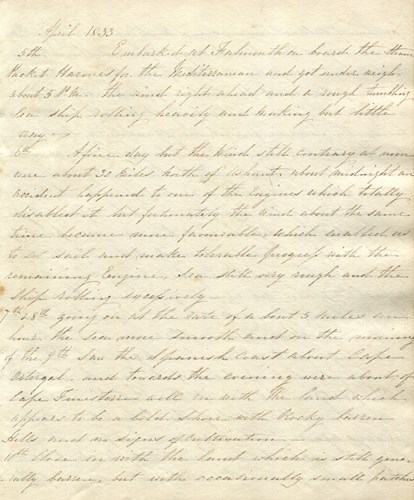 April 1833
5th. Embarked at Falmouth on board the Steam
Packet Hermes for the Mediterranean and got under weigh
about 5 P.M. the wind right ahead and a rough tumbling
Sea ship rolling heavily and making but little
way
6th A fine day but the Wind still contrary at noon
were about 30 Miles North of Ushant. about midnight an
accident happened to one of the Engines which totally
disabled it but fortunately the wind about the same
time became more favorable, which enabled us
to set sail and make tolerable progress with the
remaining Engine, Sea still very rough and the
Ship rolling excessively
7th & 8th going on at the rate of about 5 Miles an
hour the sea more smooth and on the morning
of the 9th Saw the Spanish Coast about Cape
Ortegal. and towards the evening were about off
Cape Finesterre well in with the land which
appears to be a bold shore with Rocky barren
Hills and no signs of Cultivation
10th Close in with the land which is still gene
rally barren, but with occasionally small patches